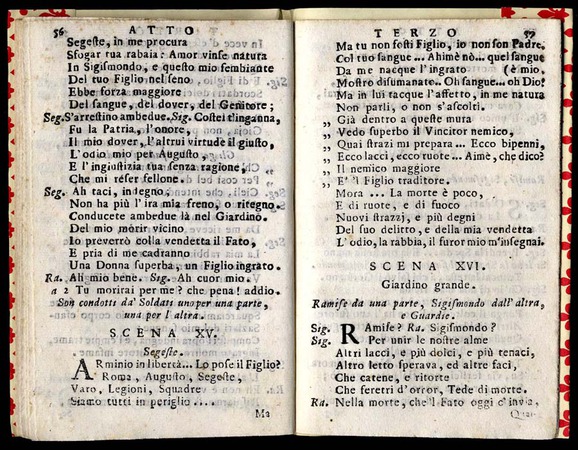 56 ATTO
Segeste, in me procura
Sfogar tua rabaia: Amor vinse natura
In Sigismondo, e questo mio sembiante
Del tuo Figlio nel seno
Ebbe forza maggiore
Del sangue, del dover, del Genitore;
Seg. S'arrestino ambedue. Sig. Costei t'inganna,
Fu la Patria, l'onore,
Il mio dover, l'altrui virtude il giusto,
L'odio mio per Augusto,
E l'ingiustizia tua senza ragione,
Che mi réser fellone.
Seg. Ah taci, indegno;
Non ha più l'ira mia freno, o ritegno.
Conducete ambedue là nel Giardino.
Del mio morir vicino
Io preverrò colla vendetta il Fato,
E pria di me cadranno
Una Donna superba, un Figlio ingrato.
Ra. Ah mio bene. Sig. Ah cuor mio.
a 2 Tu morirai per me? che pena! addio.
Son condotti da' Soldati uno per una parte,
una per l'altra.
SCENA XV.
Segeste.
ARminio in libertà... Lo pose il Figlio?
Roma, Augusto, Segeste,
Varo, Legioni, Squadre
Siamo tutti in periglio....
Ma
TERZO 57
Ma tu non fosti Figlio, io non son Padre.
Col tuo sangue... Ahimè nò... quel sangue
Da me nacque l'ingrato (è mio.
Mostro disumanato. Oh sangue.. oh Dio!
Ma in lui tacque l'affetto, in me natura
Non parli, o non s'ascolti.
„ Già dentro a queste mura
„ Vedo superbo il Vincitor nemico,
„ Quai strazi mi prepara... Ecco bipenni,
„ Ecco lacci, ecco ruote... Aimè, che dico?
„ Il nemico maggiore
„ E' il Figlio traditore.
Mora... La morte è poco,
E di ruote, e di fuoco
Nuovi strazzj, e più degni
Del suo delitto, e della mia vendetta
L'odio, la rabbia, il furor mio m'insegnai.
SCENA XVI.
Giardino grande.
Ramise da una parte, Sigismondo dall'altra,
e Guardie.
Sig. RAmise? Ra. Sigismondo?
Sig. Per unir le nostre alme
Altri lacci, e più dolci, e più tenaci,
Altro letto sperava, ed altre faci,
Che catene, e ritorte
Che feretri d'orror, Tede di morte.
Ra. Nella morte, che'l Fato oggi c'invia,